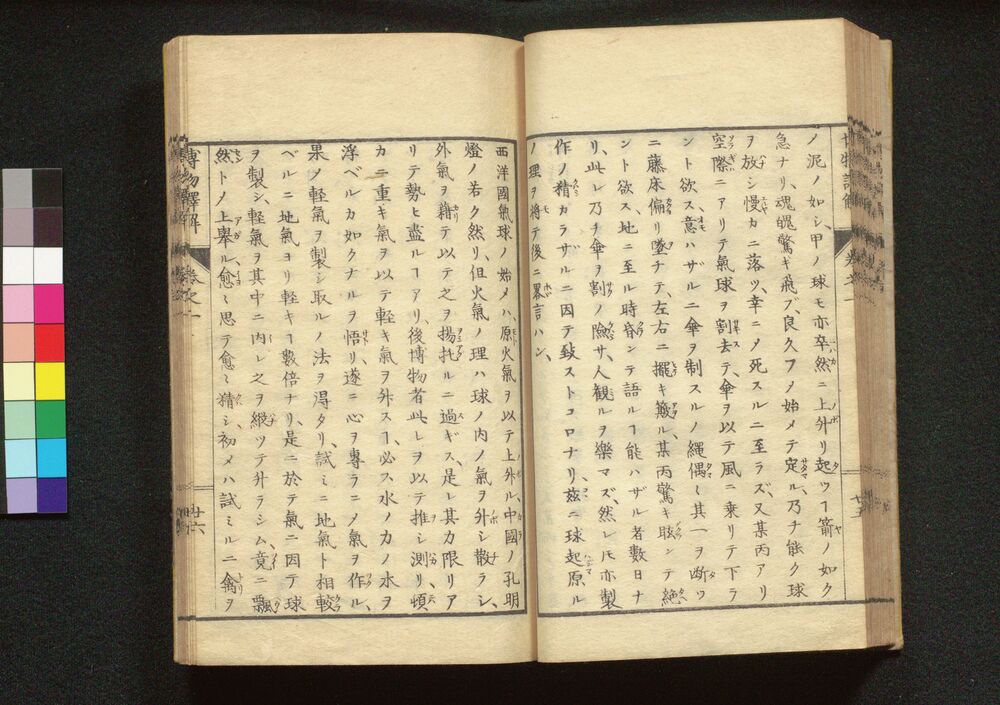 ノ泥ノ如シ、甲ノ球モ亦卒然ニ上升リ起ツヿ箭ノ如ク
急ナリ、魂魄驚ギ飛ブ、良久フノ始メテ定ル、乃チ能ク球
ヲ放シ慢カニ落ツ、幸ニノ死スルニ至ラズ、又某丙アリ
空際ニアリテ氣球ヲ割去テ、傘ヲ以テ風ニ乗リテ下ラ
ント欲ス、意ハザルニ傘ヲ制スルノ繩偶〻其一ヲ断ツ
ニ藤床偏リ墜チテ、左右ニ擺キ簸ル、某丙驚キ眩シテ絶
ント欲ス、地ニ至ル時昏シテ語ルヿ能ハザル者數日ナ
リ、此レ乃チ傘ヲ割ノ險サ、人観ルヲ樂マズ、然レ𪜈亦製
作ノ精カラザルニ因テ致ストコロナリ、兹ニ球起原ル
ノ理ヲ將テ後ニ畧言ハン、
博物譯解 卷之一 廿六
西洋國氣球ノ始メハ、原火氣ヲ以テ上升ル、中國ノ孔明
燈ノ若ク然リ、但火氣ノ理ハ球ノ内ノ氣ヲ外シ散ラシ、
外氣ヲ藉テ以テ之ヲ揚托ルニ過ギズ、是レ其力限リア
リテ勢ヒ盡ルヿアリ、後博物者此レヲ以テ推シ測リ頓
カニ重キ氣ヲ以テ軽キ氣ヲ升スヿ、必ス水ノカノ水ヲ
浮ベルカ如クナルヲ悟リ、遂ニ心ヲ專ラニノ氣ヲ作ル、
果ノ軽氣ヲ製シ取ルノ法ヲ得タリ、試ミニ地氣ト相較
ベルニ地氣ヨリ軽キヿ數倍ナリ、是ニ於テ氣ニ因テ球
ヲ製シ、軽氣ヲ其中ニ内レ之ヲ縱ツテ升ラシム、竟ニ飄
然トノ上舉ル、愈〻思テ愈〻精シ、初メハ試ミルニ禽ヲ